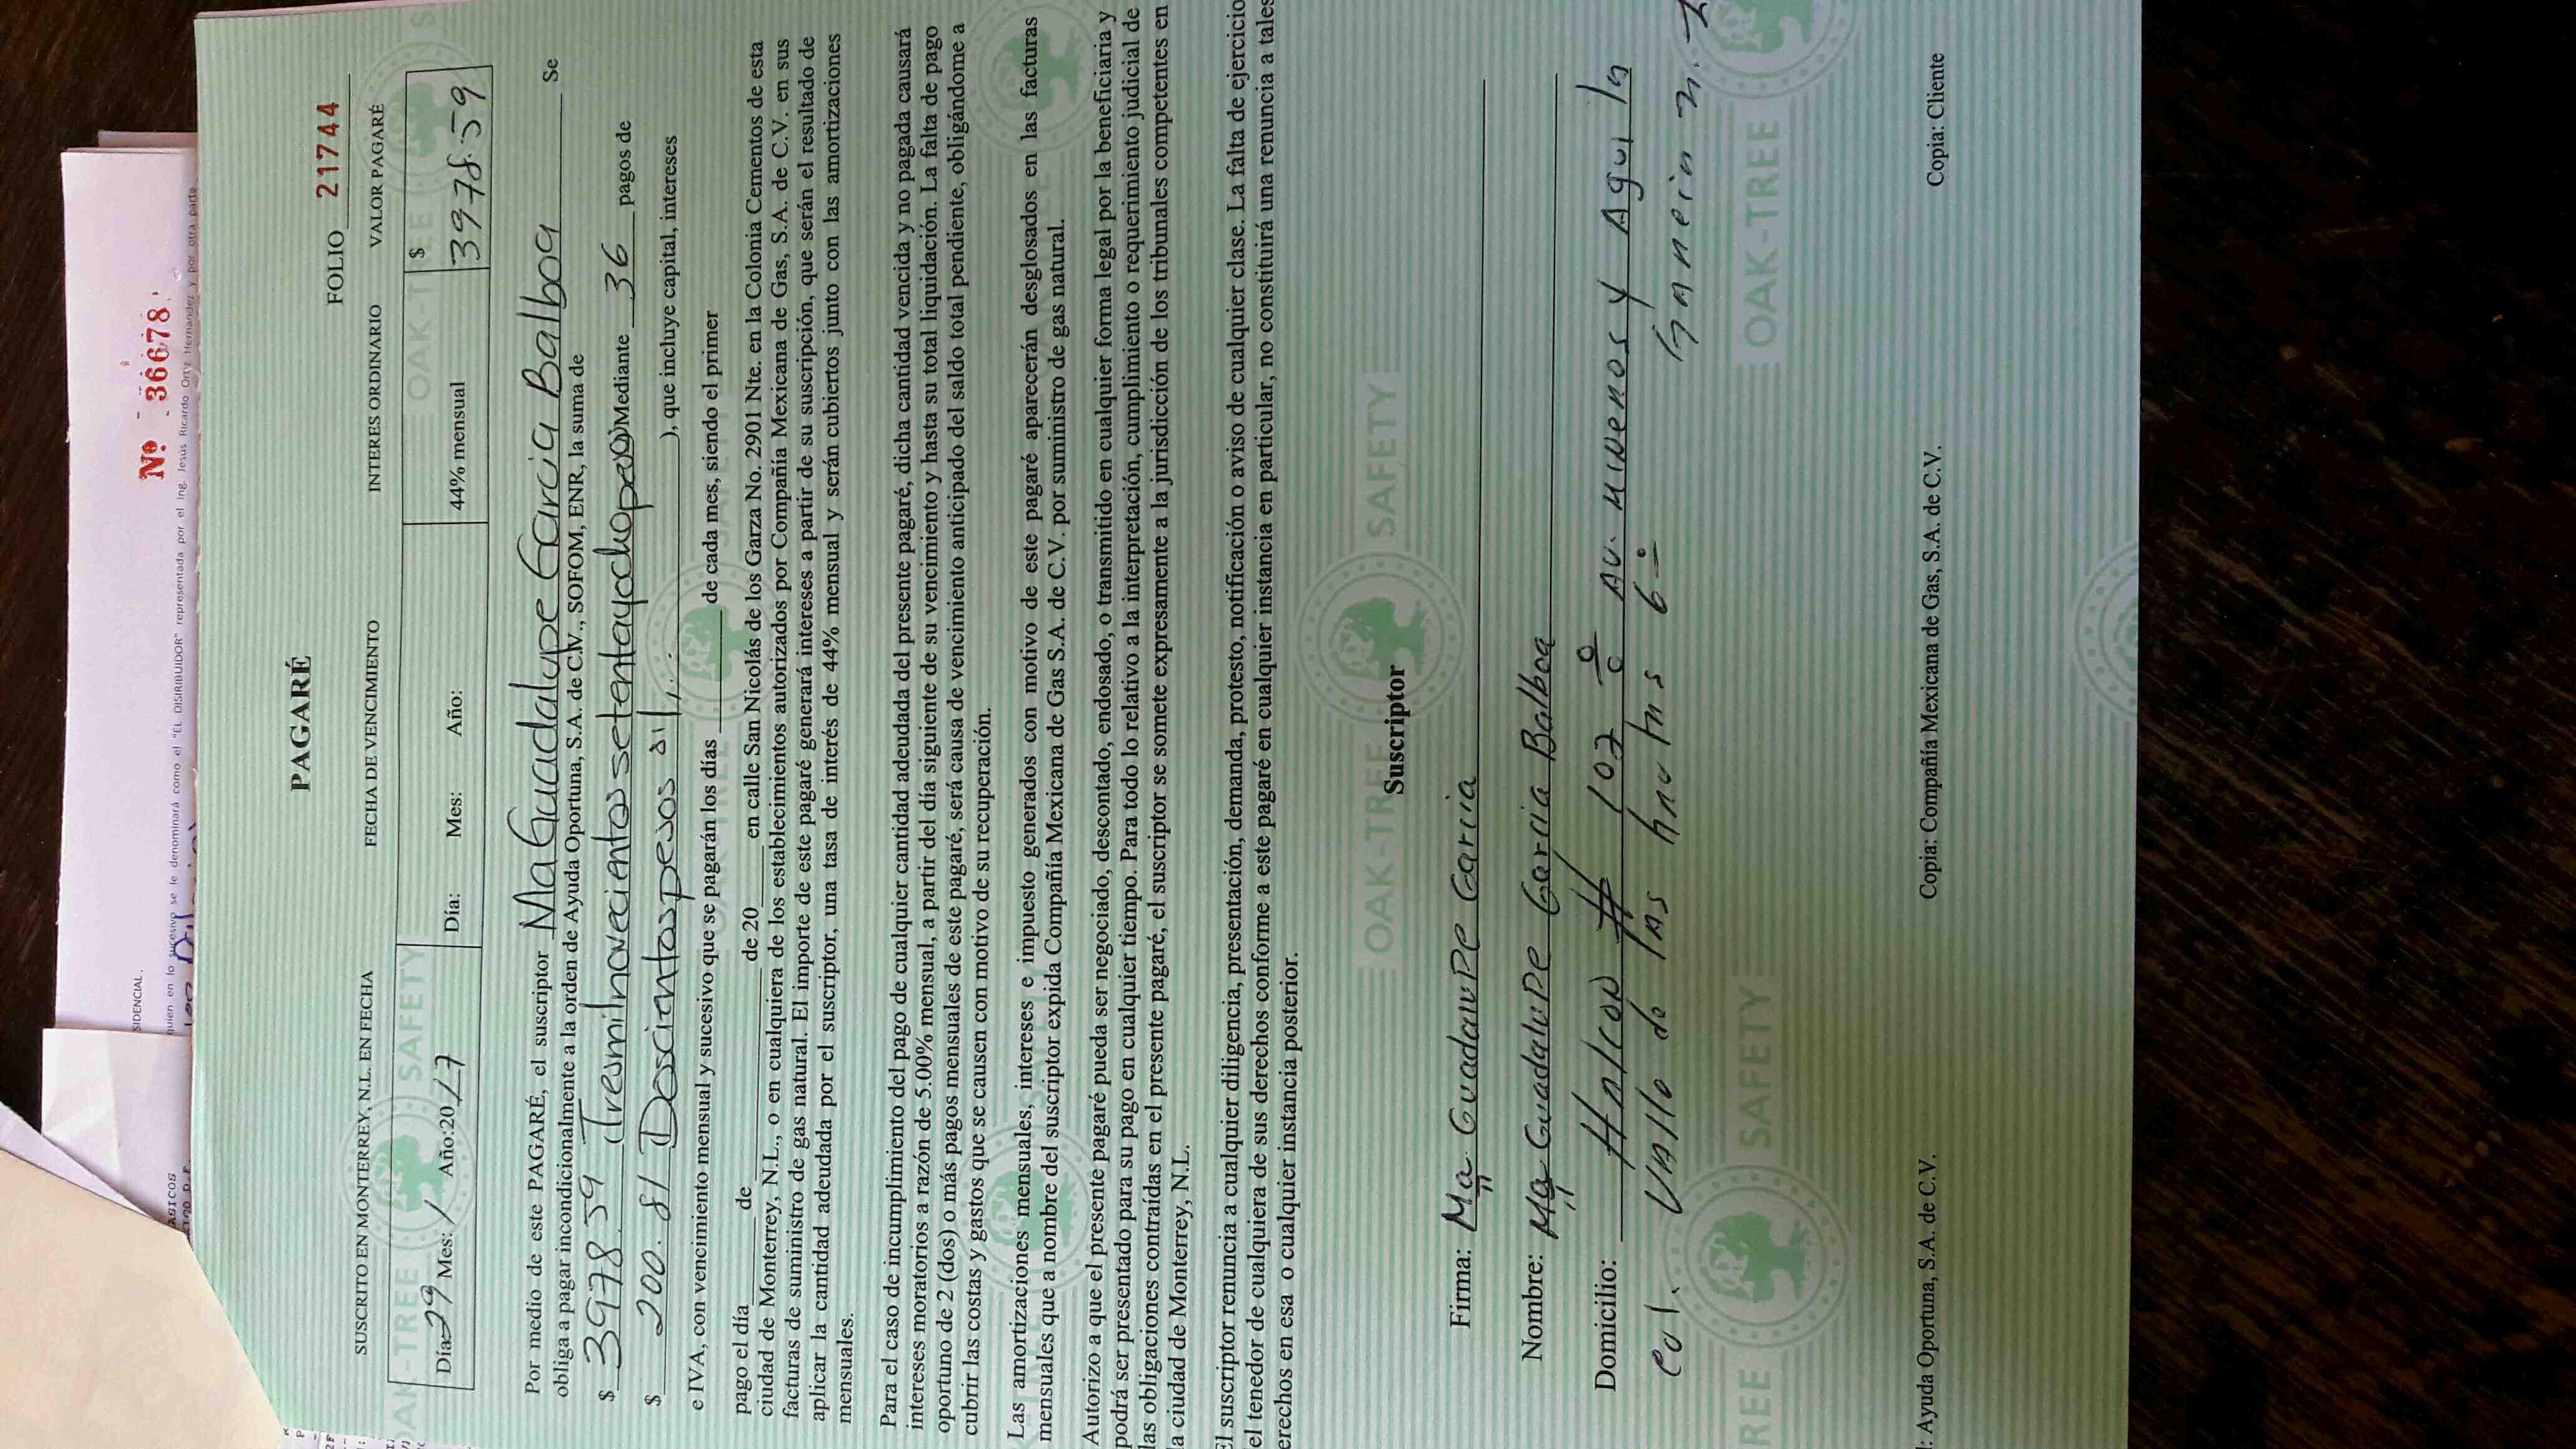 SIDENCIAL.
Nº 36678
quien en lo sucesivo se le denominará como el "EL DISIRIBUIDOR" representada por el Ing. Jesús Ricardo Ortiz Hernandez y por otra parte
ASICOS
PAGARÉ
FOLIO 21744
SUSCRITO EN MONTERREY, N.L. EN FECHA FECHA DE VENCIMIENTO INTERES ORDINARIO VALOR PAGARÉ
Día: 29 Mes: 1 Año:2017 Día: Mes: Año: 44% mensual $ 3978.59
Por medio de este PAGARÉ, el suscriptor Ma Guadalupe Garcia Balboa Se
obliga a pagar incondicionalmente a la orden de Ayuda Oportuna, S.A. de C.V., SOFOM, ENR, la suma de
$ 3978.59 (Tresmilnovecientossetentayochopesos) Mediante 36 pagos de
$ 200.81 (Doscientospesos 81 ), que incluye capital, intereses
e IVA, con vencimiento mensual y sucesivo que se pagarán los días de cada mes, siendo el primer
pago el día de de 20 en calle San Nicolás de los Garza No. 2901 Nte. en la Colonia Cementos de esta
ciudad de Monterrey, N.L., o en cualquiera de los establecimientos autorizados por Compañía Mexicana de Gas, S.A. de C.V. en sus
facturas de suministro de gas natural. El importe de este pagaré generará intereses a partir de su suscripción, que serán el resultado de
aplicar la cantidad adeudada por el suscriptor, una tasa de interés de 44% mensual y serán cubiertos junto con las amortizaciones
mensuales.
Para el caso de incumplimiento del pago de cualquier cantidad adeudada del presente pagaré, dicha cantidad vencida y no pagada causará
intereses moratorios a razón de 5.00% mensual, a partir del día siguiente de su vencimiento y hasta su total liquidación. La falta de pago
oportuno de 2 (dos) o más pagos mensuales de este pagaré, será causa de vencimiento anticipado del saldo total pendiente, obligándome a
cubrir las costas y gastos que se causen con motivo de su recuperación.
Las amortizaciones mensuales, intereses e impuesto generados con motivo de este pagaré aparecerán desglosados en las facturas
mensuales que a nombre del suscriptor expida Compañía Mexicana de Gas S.A. de C.V. por suministro de gas natural.
Autorizo a que el presente pagaré pueda ser negociado, descontado, endosado, o transmitido en cualquier forma legal por la beneficiaria y
podrá ser presentado para su pago en cualquier tiempo. Para todo lo relativo a la interpretación, cumplimiento o requerimiento judicial de
las obligaciones contraídas en el presente pagaré, el suscriptor se somete expresamente a la jurisdicción de los tribunales competentes en
la ciudad de Monterrey, N.L.
El suscriptor renuncia a cualquier diligencia, presentación, demanda, protesto, notificación o aviso de cualquier clase. La falta de ejercicio
el tenedor de cualquiera de sus derechos conforme a este pagaré en cualquier instancia en particular, no constituirá una renuncia a tales
erechos en esa o cualquier instancia posterior.
OAK-TREE SAFETY
Suscriptor
Firma: Ma Guadalupe Garcia
Nombre: Ma Guadalupe Garcia Balboa
Domicilio: Halcon # 107 Av. Mineros y Aguila
Col. Valle de las 6 Garcia N.
REE SAFETY OAK-TREE
: Ayuda Oportuna, S.A. de C.V. Copia: Compañía Mexicana de Gas, S.A. de C.V. Copia: Cliente